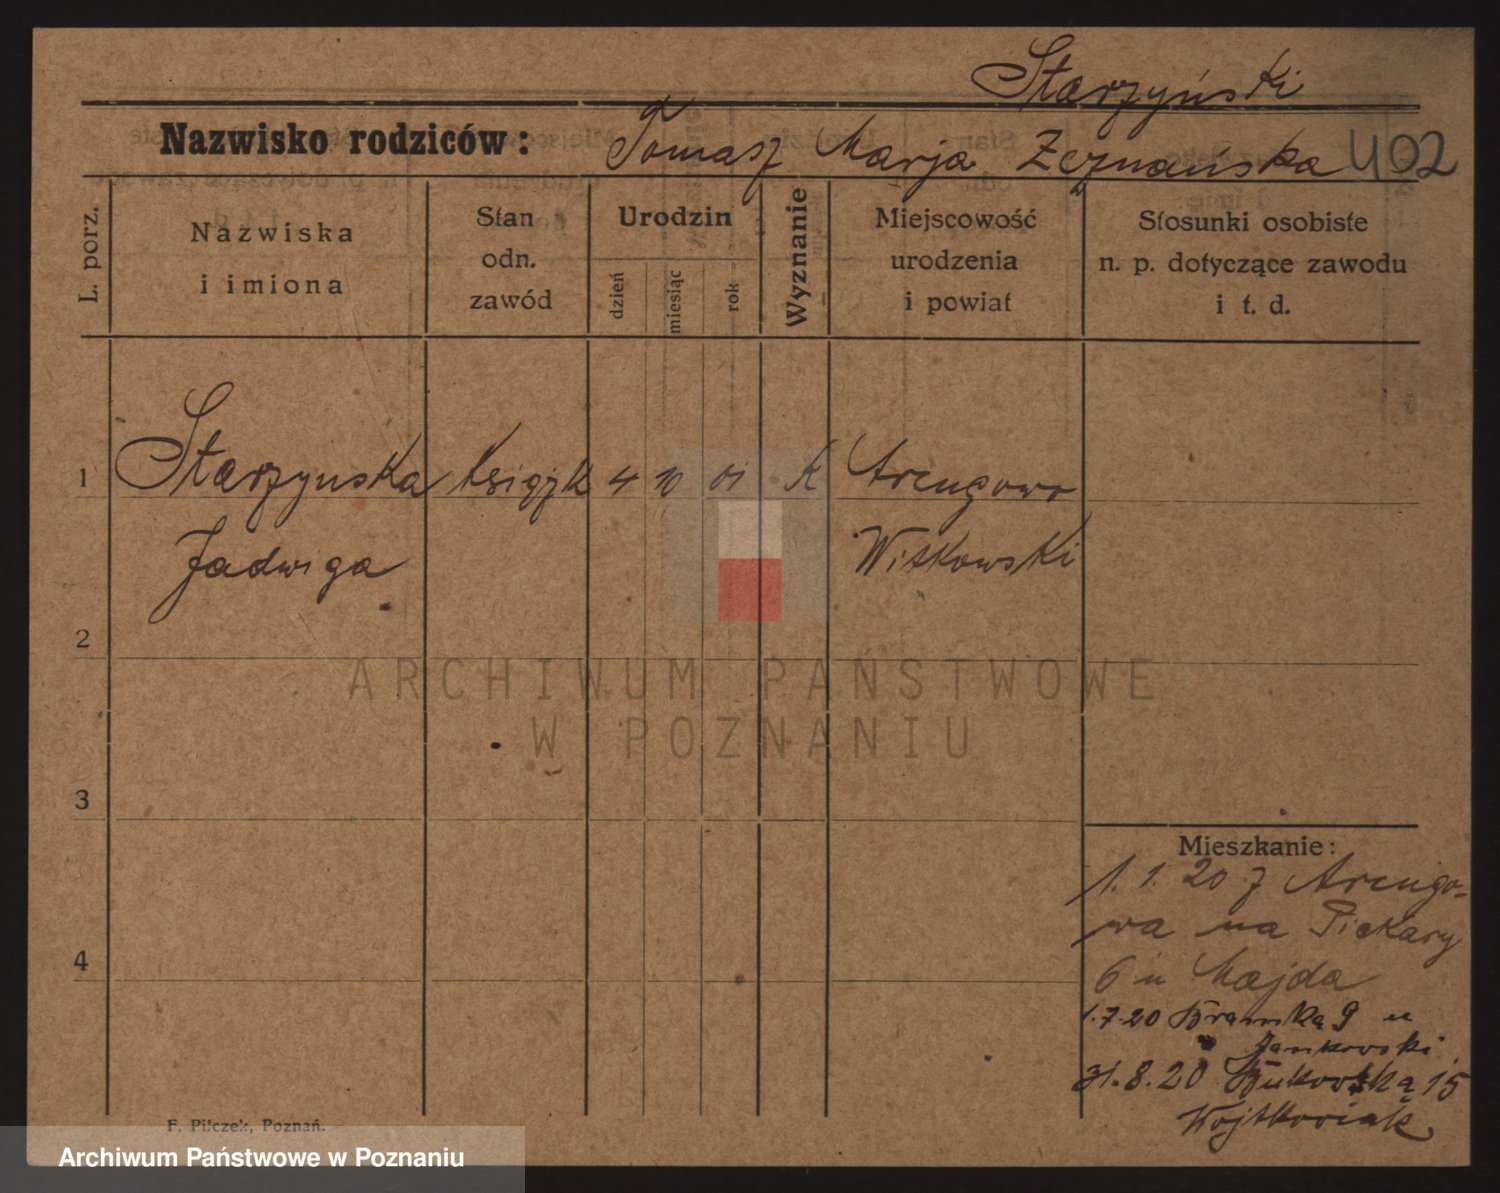 Starzyński
Nazwisko rodziców: Tomasz Marja Zeznańska 402
L. porz.
Nazwiska i imiona
Stan odn. zawód
Urodzin
dzień
miesiąc
rok
Wyznanie
Miejscowość urodzenia i powiat
Stosunki osobiste n. p. dotyczące zawodu i t. d.
1 Starzynska Książk 4 10 01 K Arcugowo
Jadwiga Witkowski
2
3
4
Mieszkanie:
1. 1. 20 z Arcugo-
wa na Piekary
6 u Majda
1.7.20 Bramka 9 u
Jankowski
31.8.20 Bukowską 15
Wojtkowiak
F. Pilczek, Poznań.
ARCHIWUM PAŃSTWOWE
W POZNANIU
Archiwum Państwowe w Poznaniu